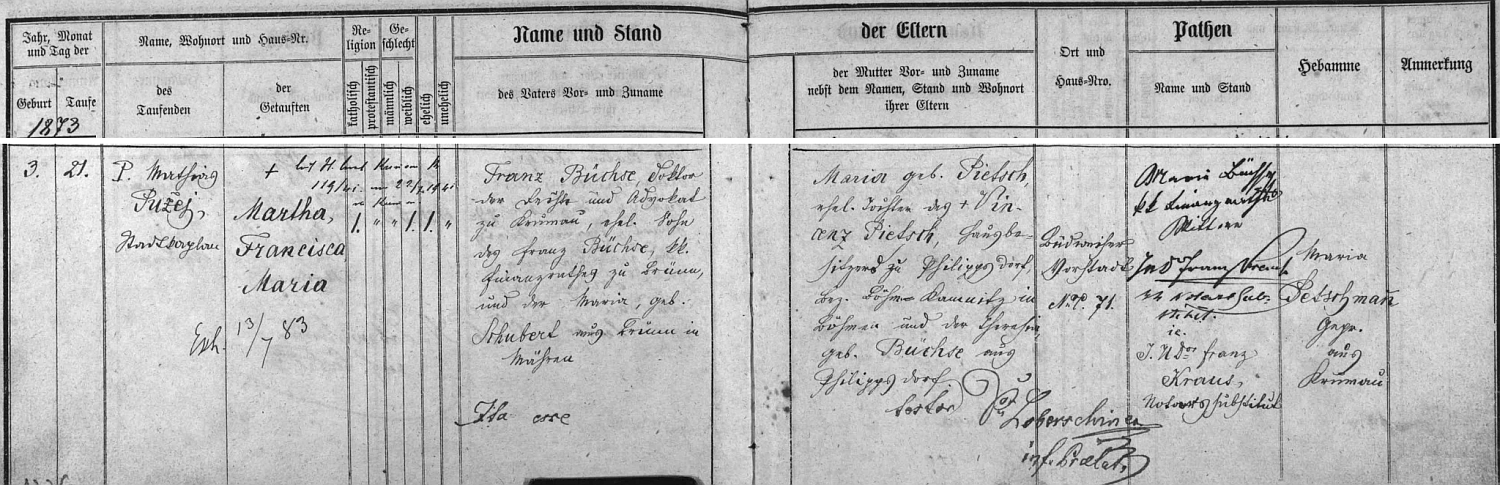 Jahr, Monat und Tag der
Geburt
Taufe
1873
Name, Wohnort und Haus-Nr.
des Taufenden
der Getauften
Religion
katholisch
protestantisch
Geschlecht
männlich
weiblich
ehelich
unehelich
Name und Stand
des Vaters Vor- und Zuname
der Eltern
der Mutter Vor- und Zuname
nebst dem Namen, Stand und Wohnort
ihrer Eltern
Ort und
Haus-Nro.
Pathen
Name und Stand
Hebamme
Anmerkung
3.
21.
P. Mathias
Pužej,
Stadtkaplan
+
Martha,
Francisca
Maria
Exh. 13/7 83
1. " " 1. 1. "
Franz Büchse, Doktor
der Rechte und Advokat
zu Krumau, ehel. Sohn
des Franz Büchse, kk.
Finanzrathes zu Brünn,
und der Maria, geb.
Schubert aus Brünn in
Mähren
Ita esse
Maria geb. Pietsch,
ehel. Tochter des + Vin-
cenz Pietsch, Hausbe-
sitzers zu Philippsdorf,
Bez. Böhm-Kamnitz in
Böhmen und der Theresia,
geb. Büchse aus
Philippsdorf.
testor
inf. Praelat
Budweiser
Vorstadt
No. 71.
Marie Büchse
kk Finanzraths
Wittwe
J. U. Dor Franz
Kraus,
Notariatssubstitut
Maria
Petschman
Gepr.
aus
Krumau